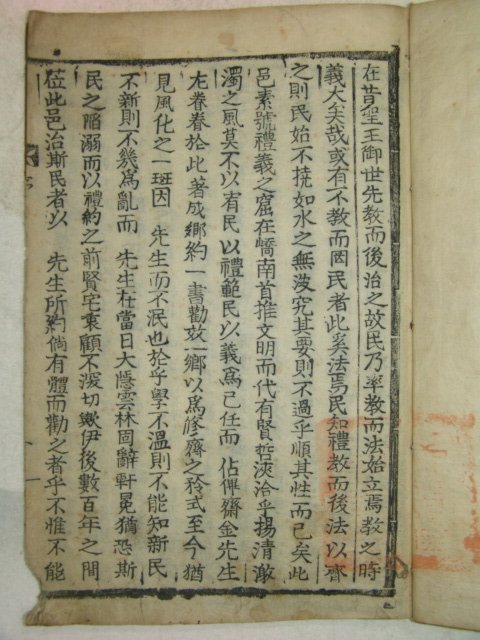 在昔聖王御世先教而後治之故民乃率教而法始立焉教之時
義大矣哉或有不教而罔民者此奚法焉民知禮教而後法以齊
之則民始不撓如水之無波究其要則不過乎順其性而已矣此
邑素號禮義之窟在嶠南首推文明而代有賢哲浹洽乎揚清激
濁之風莫不以有民以禮範民以義爲己任而 佔俾齋金先生
尨眷眷於此著成鄉約一書勸效一鄉以爲修齊之矜式至今猶
見風化之一斑因 先生而不泯也於乎學不溫則不能知新民
不新則不幾爲亂而 先生在當日大隱雲林固辭軒冕猶恐斯
民之陷溺而以禮約之前賢宅衷顧不深切歟伊後數百年之間
莅此邑治斯民者以 先生所約倘有體而勸之者乎不惟不能